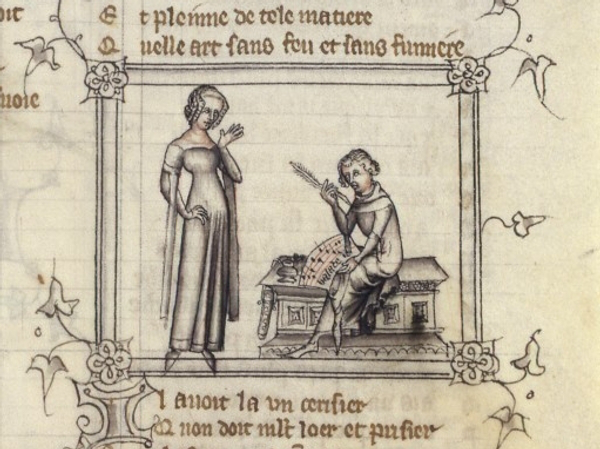 oit
Et pleinne de tele matiere
Quelle art sans feu et sans fumiere
uoie
l auoit la vn cerisier
Q non doit mlt loer et prisier